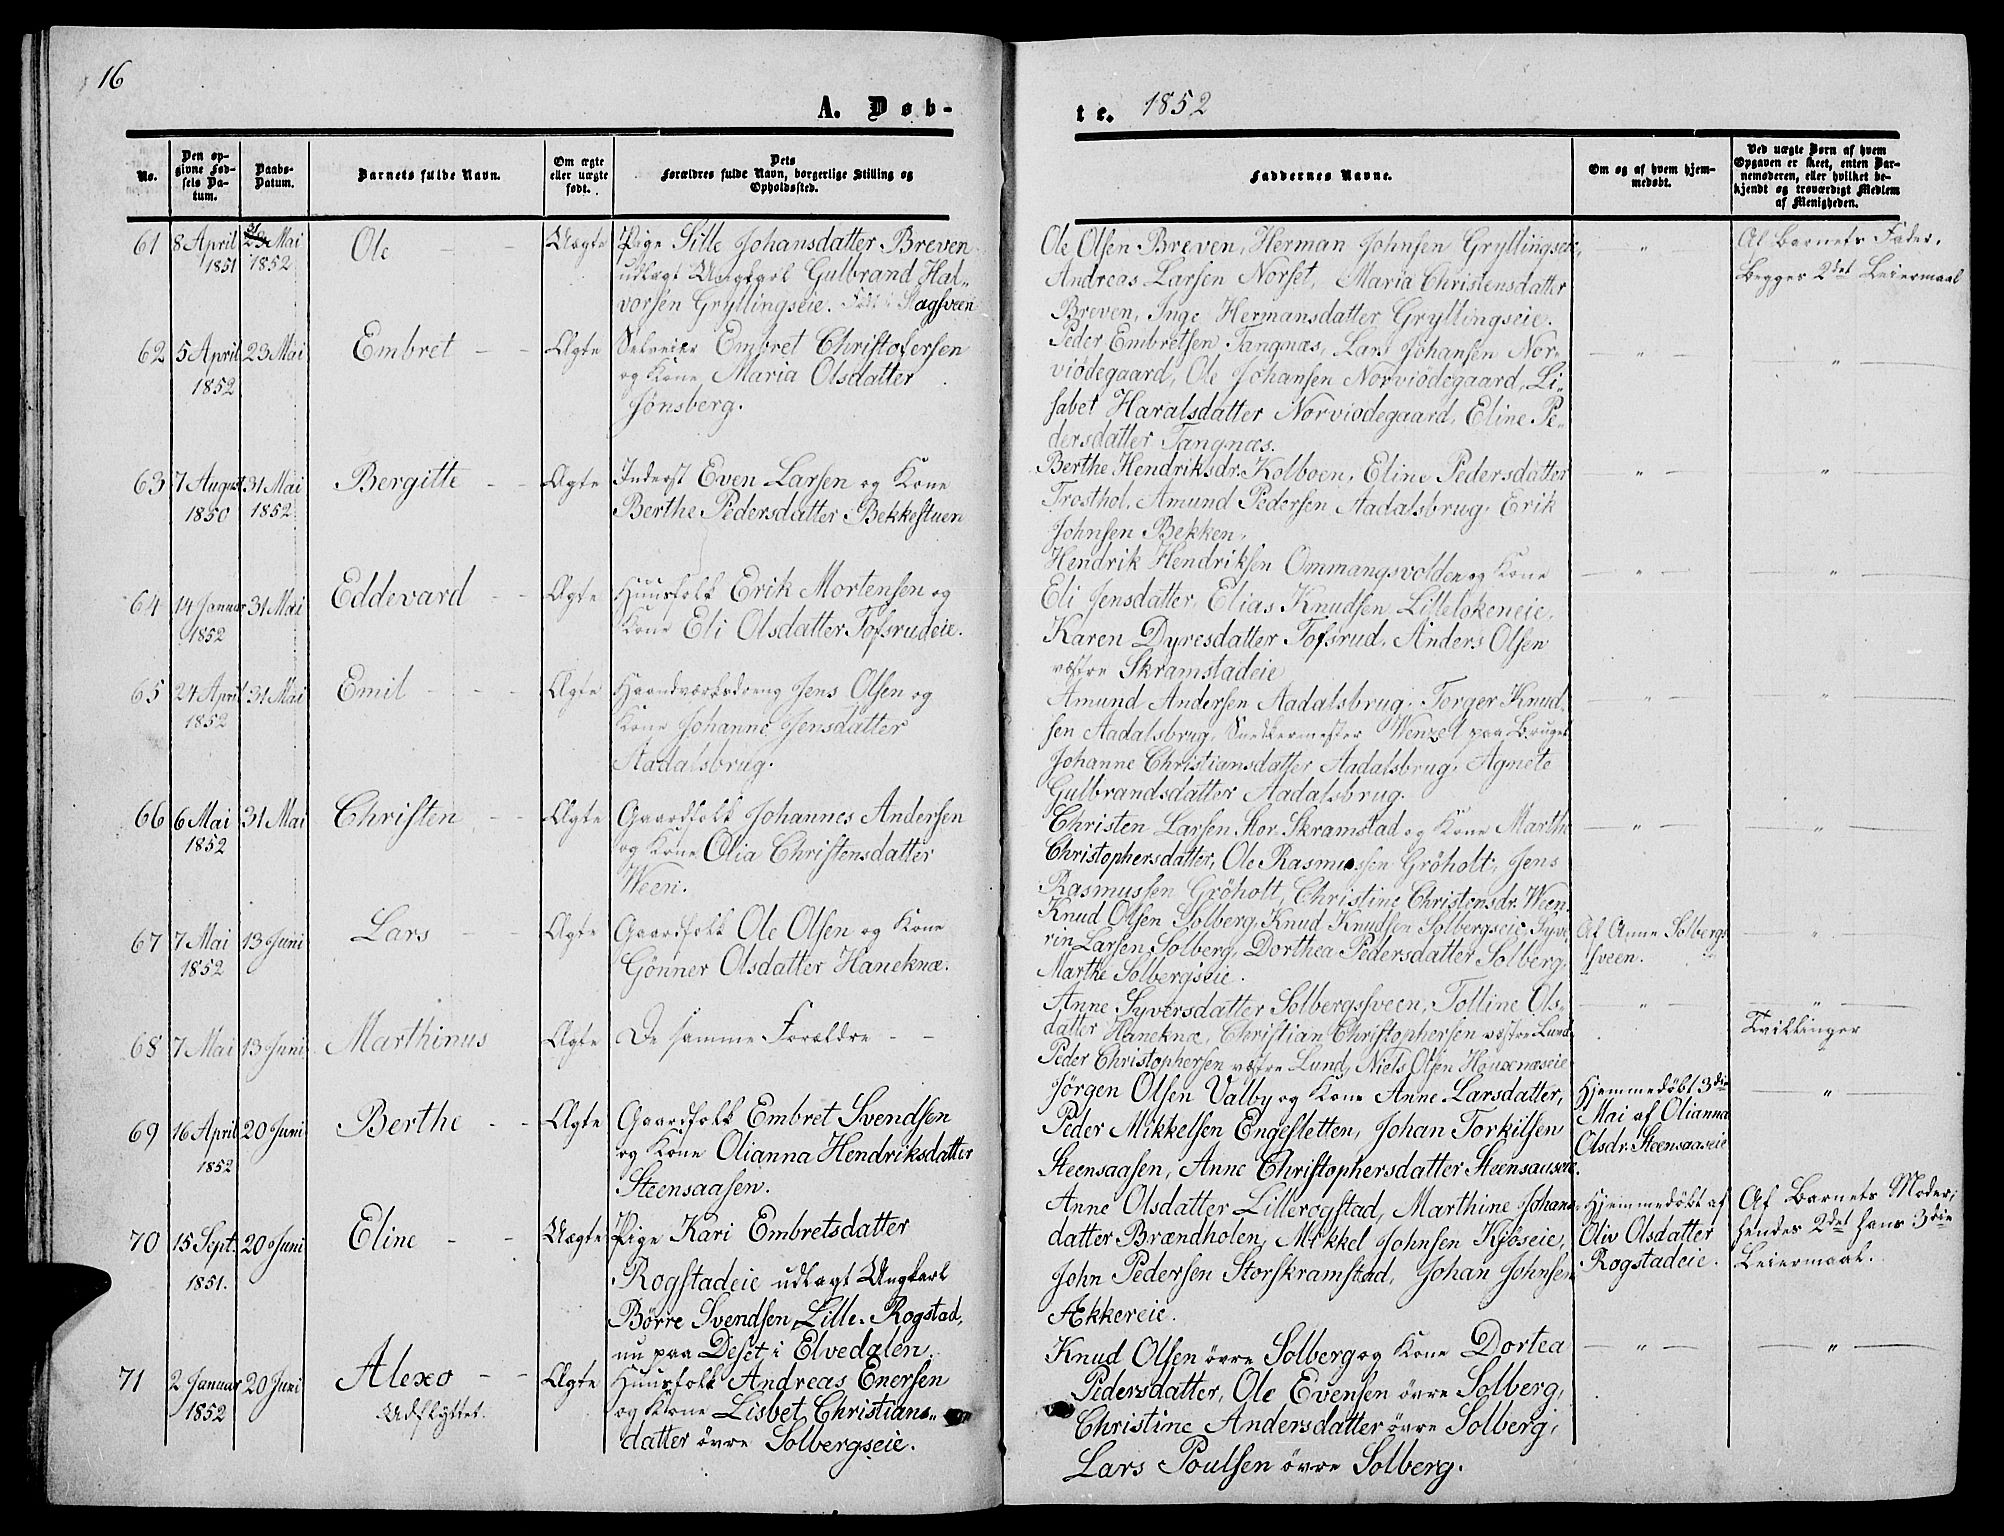 16
A. Døb-
te. 1852
No.
Den op-
givne Fød-
sels Da-
tum.
Daabs-
Datum.
Barnets fulde Navn.
Om ægte
eller uægte
født.
Dets
Forældres fulde Navn, borgerlige Stilling og
Opholdssted.
Faddernes Navne.
Om og af hvem hjem-
medøbt.
Ved uægte Børn af hvem
Opgaven er skeet, enten Bar-
nemoderen, eller hvilket be-
kjendt og troværdigt Medlem
af Menigheden.
61
8 April
1851
31 Mai
1852
Ole
Uægte
Pige Sille Johansdatter Breven
udlagt Ungkarl Gulbrand Hal-
vorsen Gryllingseie.
Ole Olsen Breven, Herman Johnsen Gryllingseie,
Andreas Larsen Norset, Maria Christensdatter
Breven, Inge Hermansdatter Gryllingseie.
"
Af Barnets Fader.
Begges 2det Leiermaal
62
5 April
1852
23 Mai
Embret
Ægte
Selveier Embret Christofersen
og Kone Maria Olsdatter
Jönsberg.
Peder Embretsen Tangnæs, Lars Johansen Nor-
viödegaard, Ole Johansen Norviödegaard, Li-
sabet Haralsdatter Norviodegaard, Eline Pe-
dersdatter Tangnæs.
"
"
63
7 August
1850
31 Mai
1852
Bergitte
Ægte
Inderst Even Larsen og Kone
Berthe Pedersdatter Bekkestuen
Berthe Hendriksdr. Kolboen, Eline Pedersdatter
Trosthol, Amund Pedersen Aadalsbrug, Erik
Johnsen Bekken.
"
"
64
14 Januar
1852
31 Mai
Eddevard
Ægte
Huusfolk Erik Mortensen og
Kone Eli Olsdatter Tofsrudeie.
Hendrik Hendriksen Ommangsvolden og Kone
Eli Jensdatter, Elias Knudsen Lillelökeneie,
Karen Dyresdatter Tofsrud, Anders Olsen
vestre Skramstadeie
"
"
65
24 April
1852
31 Mai
Emil
Ægte
Haandværksdreng Jens Olsen og
Kone Johanne Jensdatter
Aadalsbrug.
Amund Andersen Aadalsbrug, Torger Knud-
sen Aadalsbrug, Snedkermester Wenzel paa Bruget
Johanne Christiansdatter Aadalsbrug, Agnete
Gulbrandsdatter Aadalsbrug.
"
"
66
6 Mai
1852
31 Mai
Christen
Ægte
Gaardfolk Johannes Andersen
og Kone Olia Christensdatter
Ween.
Christen Larsen Stor-Skramstad og Kone Marthe
Christophersdatter, Ole Rasmussen Gröholt, Jens
Rasmussen Gröholt, Christine Christensdr. Ween.
"
"
67
7 Mai
1852
13 Juni
Lars
Ægte
Gaardfolk Ole Olsen og Kone
Gönner Olsdatter Haneknæ.
Knud Olsen Solberg, Knud Knudsen Solbergseie, Syve-
rin Larsen Solberg, Dorthea Pedersdatter Solberg,
Marthe Solbergseie.
Af Anne Solbergs-
sveen.
"
68
7 Mai
13 Juni
Marthinus
Ægte
De samme Forældre
Anne Syversdatter Solbergssveen, Tolline Ols-
datter Haneknæ, Christian Christophersen vestre Lund
Peder Christophersen vestre Lund, Niels Olsen
"
"
Tvillinger
69
16 April
1852
20 Juni
Berthe
Ægte
Gaardfolk Embret Svendsen
og Kone Olianna Hendriksdatter
Steensaasen.
Jörgen Olsen Valby og Kone Anne Larsdatter,
Peder Mikkelsen Engesletten, Johan Torkilsen
Steensaasen, Anne Christophersdatter Steensaaseie.
Hjemmedöbt 3die
Mai af Olianna
Olsdr. Steensaaseie
"
70
15 Sept.
1851.
20 Juni
Eline
Uægte
Pige Kari Embretsdatter
Rogstadeie udlagt Ungkarl
Börre Svendsen Lille-Rogstad,
nu paa Deset i Elvedalen.
Anne Olsdatter Lillerogstad, Marthine Johans-
datter Brændholen, Mikkel Johnsen Kjöseie,
John Pedersen Storskramstad, Johan Johnsen
Akkereie.
Hjemmedöbt af
Oliv Olsdatter
Rogstadeie.
Af Barnets Moder;
hendes 2det hans 3die
Leiermaal.
71
2 Januar
1852
20 Juni
Alexo
Udflyttet.
Ægte
Huusfolk Andreas Enersen
og Kone Lisbet Christians-
datter övre Solbergseie.
Knud Olsen övre Solberg og Kone Dortea
Pedersdatter, Ole Evensen övre Solberg,
Christine Andersdatter övre Solberg,
Lars Poulsen övre Solberg.
"
"